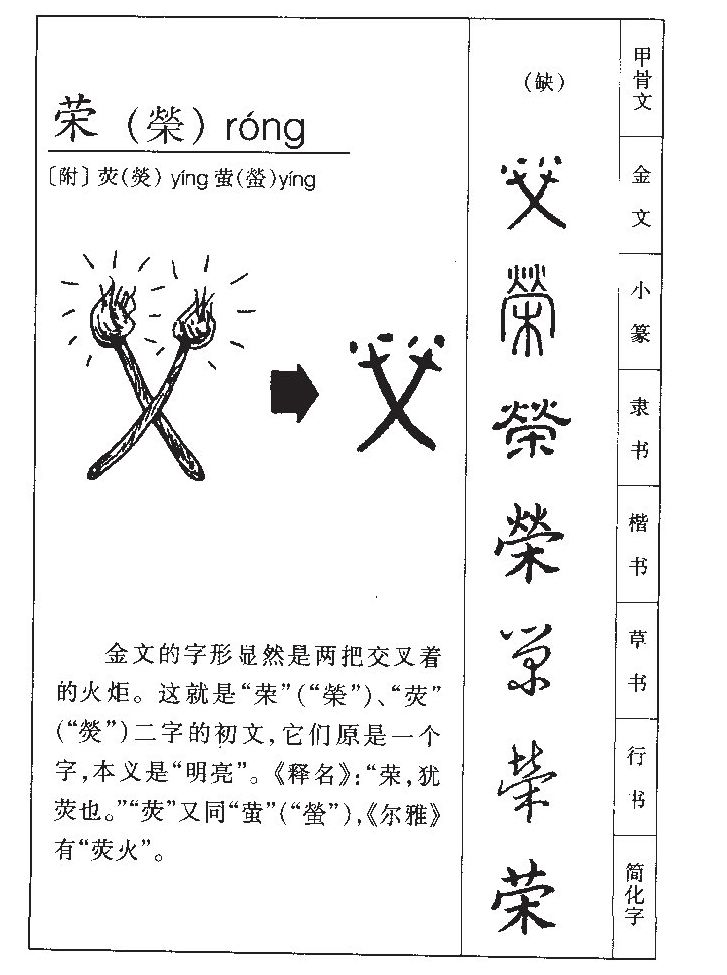 荣（榮）róng
〔附〕荧(熒) yíng 萤(螢)yíng
金文的字形显然是两把交叉着
的火炬。这就是“荣”(“榮”)、“荧”
(“熒”)二字的初文,它们原是一个
字,本义是“明亮”。《释名》:“荣,犹
荧也。”“荧”又同“萤”(“螢”),《尔雅》
有“荧火”。
（缺）
甲骨文
金文
榮
小篆
榮
隶书
榮
楷书
草书
行书
荣
简化字